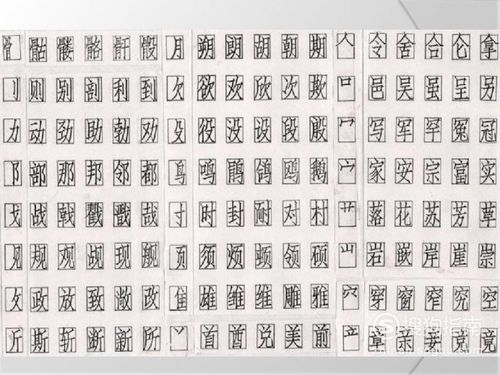 骨 骷 髅 骼 骭 骰 月 朔 朗 胡 朝 期 人 令 舍 合 仑 拿
刂 则 别 剖 利 到 欠 欲 欢 欣 次 欺 口 邑 吴 虽 呈 另
力 动 劲 助 勃 劝 殳 役 没 设 段 殷 冖 写 军 罕 冤 冠
阝 部 那 邦 邻 都 鸟 鸣 鹃 鸽 鸥 鹅 宀 家 安 宗 富 实
戈 战 戟 戳 戬 哉 寸 时 封 耐 对 村 艹 落 花 苏 芳 草
见 规 观 觇 现 舰 页 须 烦 顿 领 硕 山 岩 嵌 岸 崖 崇
攵 政 放 致 敞 改 隹 雄 雏 维 雕 雅 穴 穿 窗 窄 究 空
斤 斯 斩 断 新 所 丷 首 酋 兑 美 前 章 竟
搜狗指南